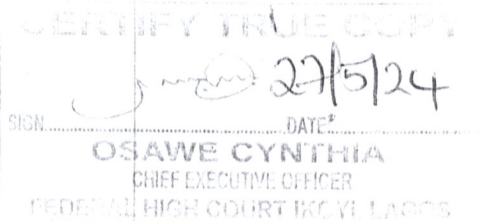 CERTIFY TRUE COPY
27/5/24
SIGN............................DATE............................
OSAWE CYNTHIA
CHIEF EXECUTIVE OFFICER
FEDERAL HIGH COURT IKOYI, LAGOS